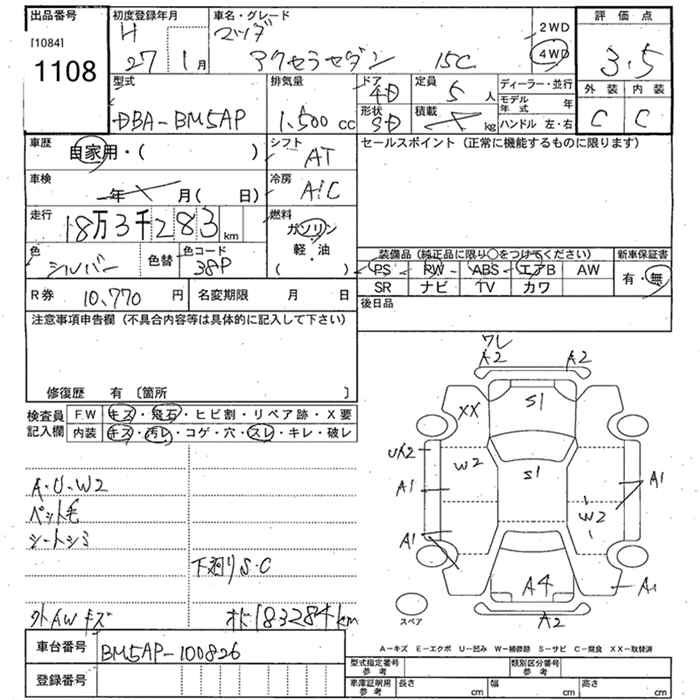 出品番号
[1084]
1108
初度登録年月
H
27 1月
車名・グレード
マツダ
アクセラセダン 15C
2WD
4WD
評価点
3.5
外装 内装
C C
型式
DBA-BM5AP
排気量
1,500cc
ドア
4D
形状
SD
定員
5人
積載
kg
ディーラー・並行
モデル年式 年
ハンドル 左・右
車歴
自家用・( )
シフト
AT
セールスポイント(正常に機能するものに限ります)
車検
年 月( 日)
冷房
A/C
走行
18万3千283km
燃料
ガソリン
軽・油
( )
色
シルバー
色替
色コード
38P
装備品(純正品に限り○をつけてください)
PS RW ABS エアB AW
SR ナビ TV カワ
新車保証書
有・無
R券 10,770円
名変期限 月 日
後日品
注意事項申告欄(不具合内容等は具体的に記入して下さい)
修復歴 有〔箇所 〕
検査員記入欄
FW キズ・飛石・ヒビ割・リペア跡・X要
内装 キズ・汚レ・コゲ・穴・スレ・キレ・破レ
A・U・W2
ペット毛
シートシミ
下廻りS・C
外AWキズ
オド183284km
ワレ
A2 A2
XX
S1
UX2
W2
S1
A1
A1
W2
A1
A4
A1
A2
スペア
A-キズ E-エクボ U-凹み W-補修跡 S-サビ C-腐食 XX-取替済
車台番号
BM5AP-100826
登録番号
型式指定番号参考
類別区分番号参考
車庫証明用参考
長さ cm
幅 cm
高さ cm